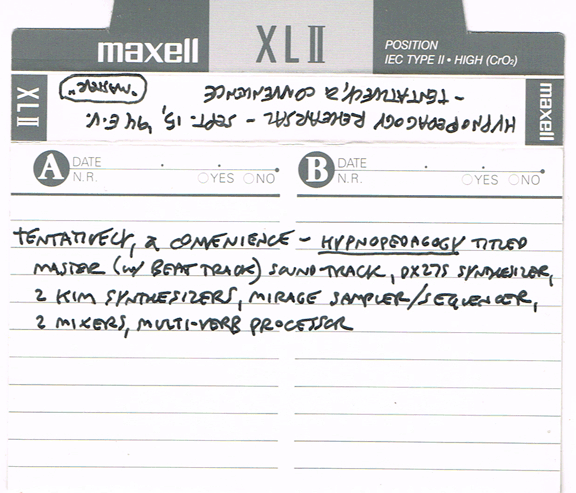 maxell
XLII
POSITION
IEC TYPE II • HIGH (CrO₂)
XLII
maxell
HYPNOPEDAGOGY REHEARSAL - SEPT. 15, '94 E.V.
- TENTATIVELY, a CONVENIENCE
"MARKED"
A DATE . .
N.R. ○YES ○NO
B DATE . .
N.R. ○YES ○NO
TENTATIVELY, a CONVENIENCE - HYPNOPEDAGOGY TITLED
MASTER (w/ BEAT TRACK) SOUND TRACK, DX27S SYNTHESIZER,
2 KIM SYNTHESIZERS, MIRAGE SAMPLER/SEQUENCER,
2 MIXERS, MULTI-VERB PROCESSOR